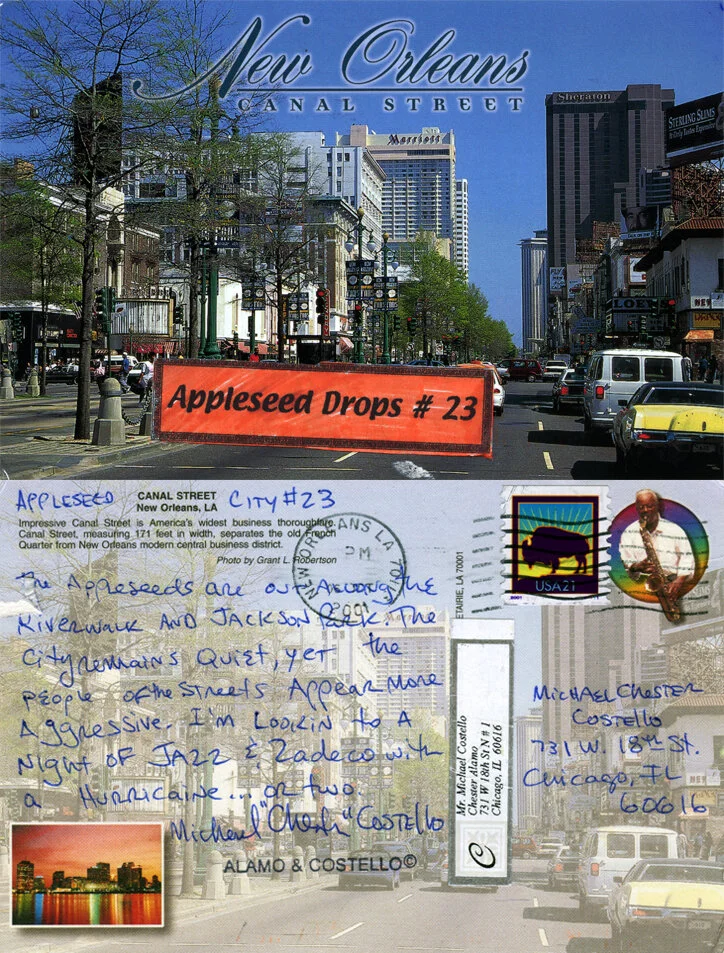 New Orleans
CANAL STREET
Sheraton
Marriott
STERLING SLIMS
LOEWS
Appleseed Drops # 23
APPLESEED CITY #23
CANAL STREET
New Orleans, LA
Impressive Canal Street is America's widest business thoroughfare.
Canal Street, measuring 171 feet in width, separates the old French
Quarter from New Orleans modern central business district.
Photo by Grant L. Robertson
NEW ORLEANS LA 701
PM
2001
The Appleseeds are out Along the
Riverwalk AND JACKSON Park. The
City remains Quiet, yet the
people of the Streets Appear More
Aggressive. I'm Lookin to A
Night of JAZZ & Zadeco with
a HURRICAINE... OR two.
Michael "Chester" COSTELLO
ALAMO & COSTELLO©
ETAIRIE, LA 70001
USA21
2001
Mr. Michael Costello
Chester Alamo
731 W 18th St N # 1
Chicago, IL 60616
C
MICHAEL CHESTER
COSTELLO
731 W. 18TH ST.
Chicago, IL
60616